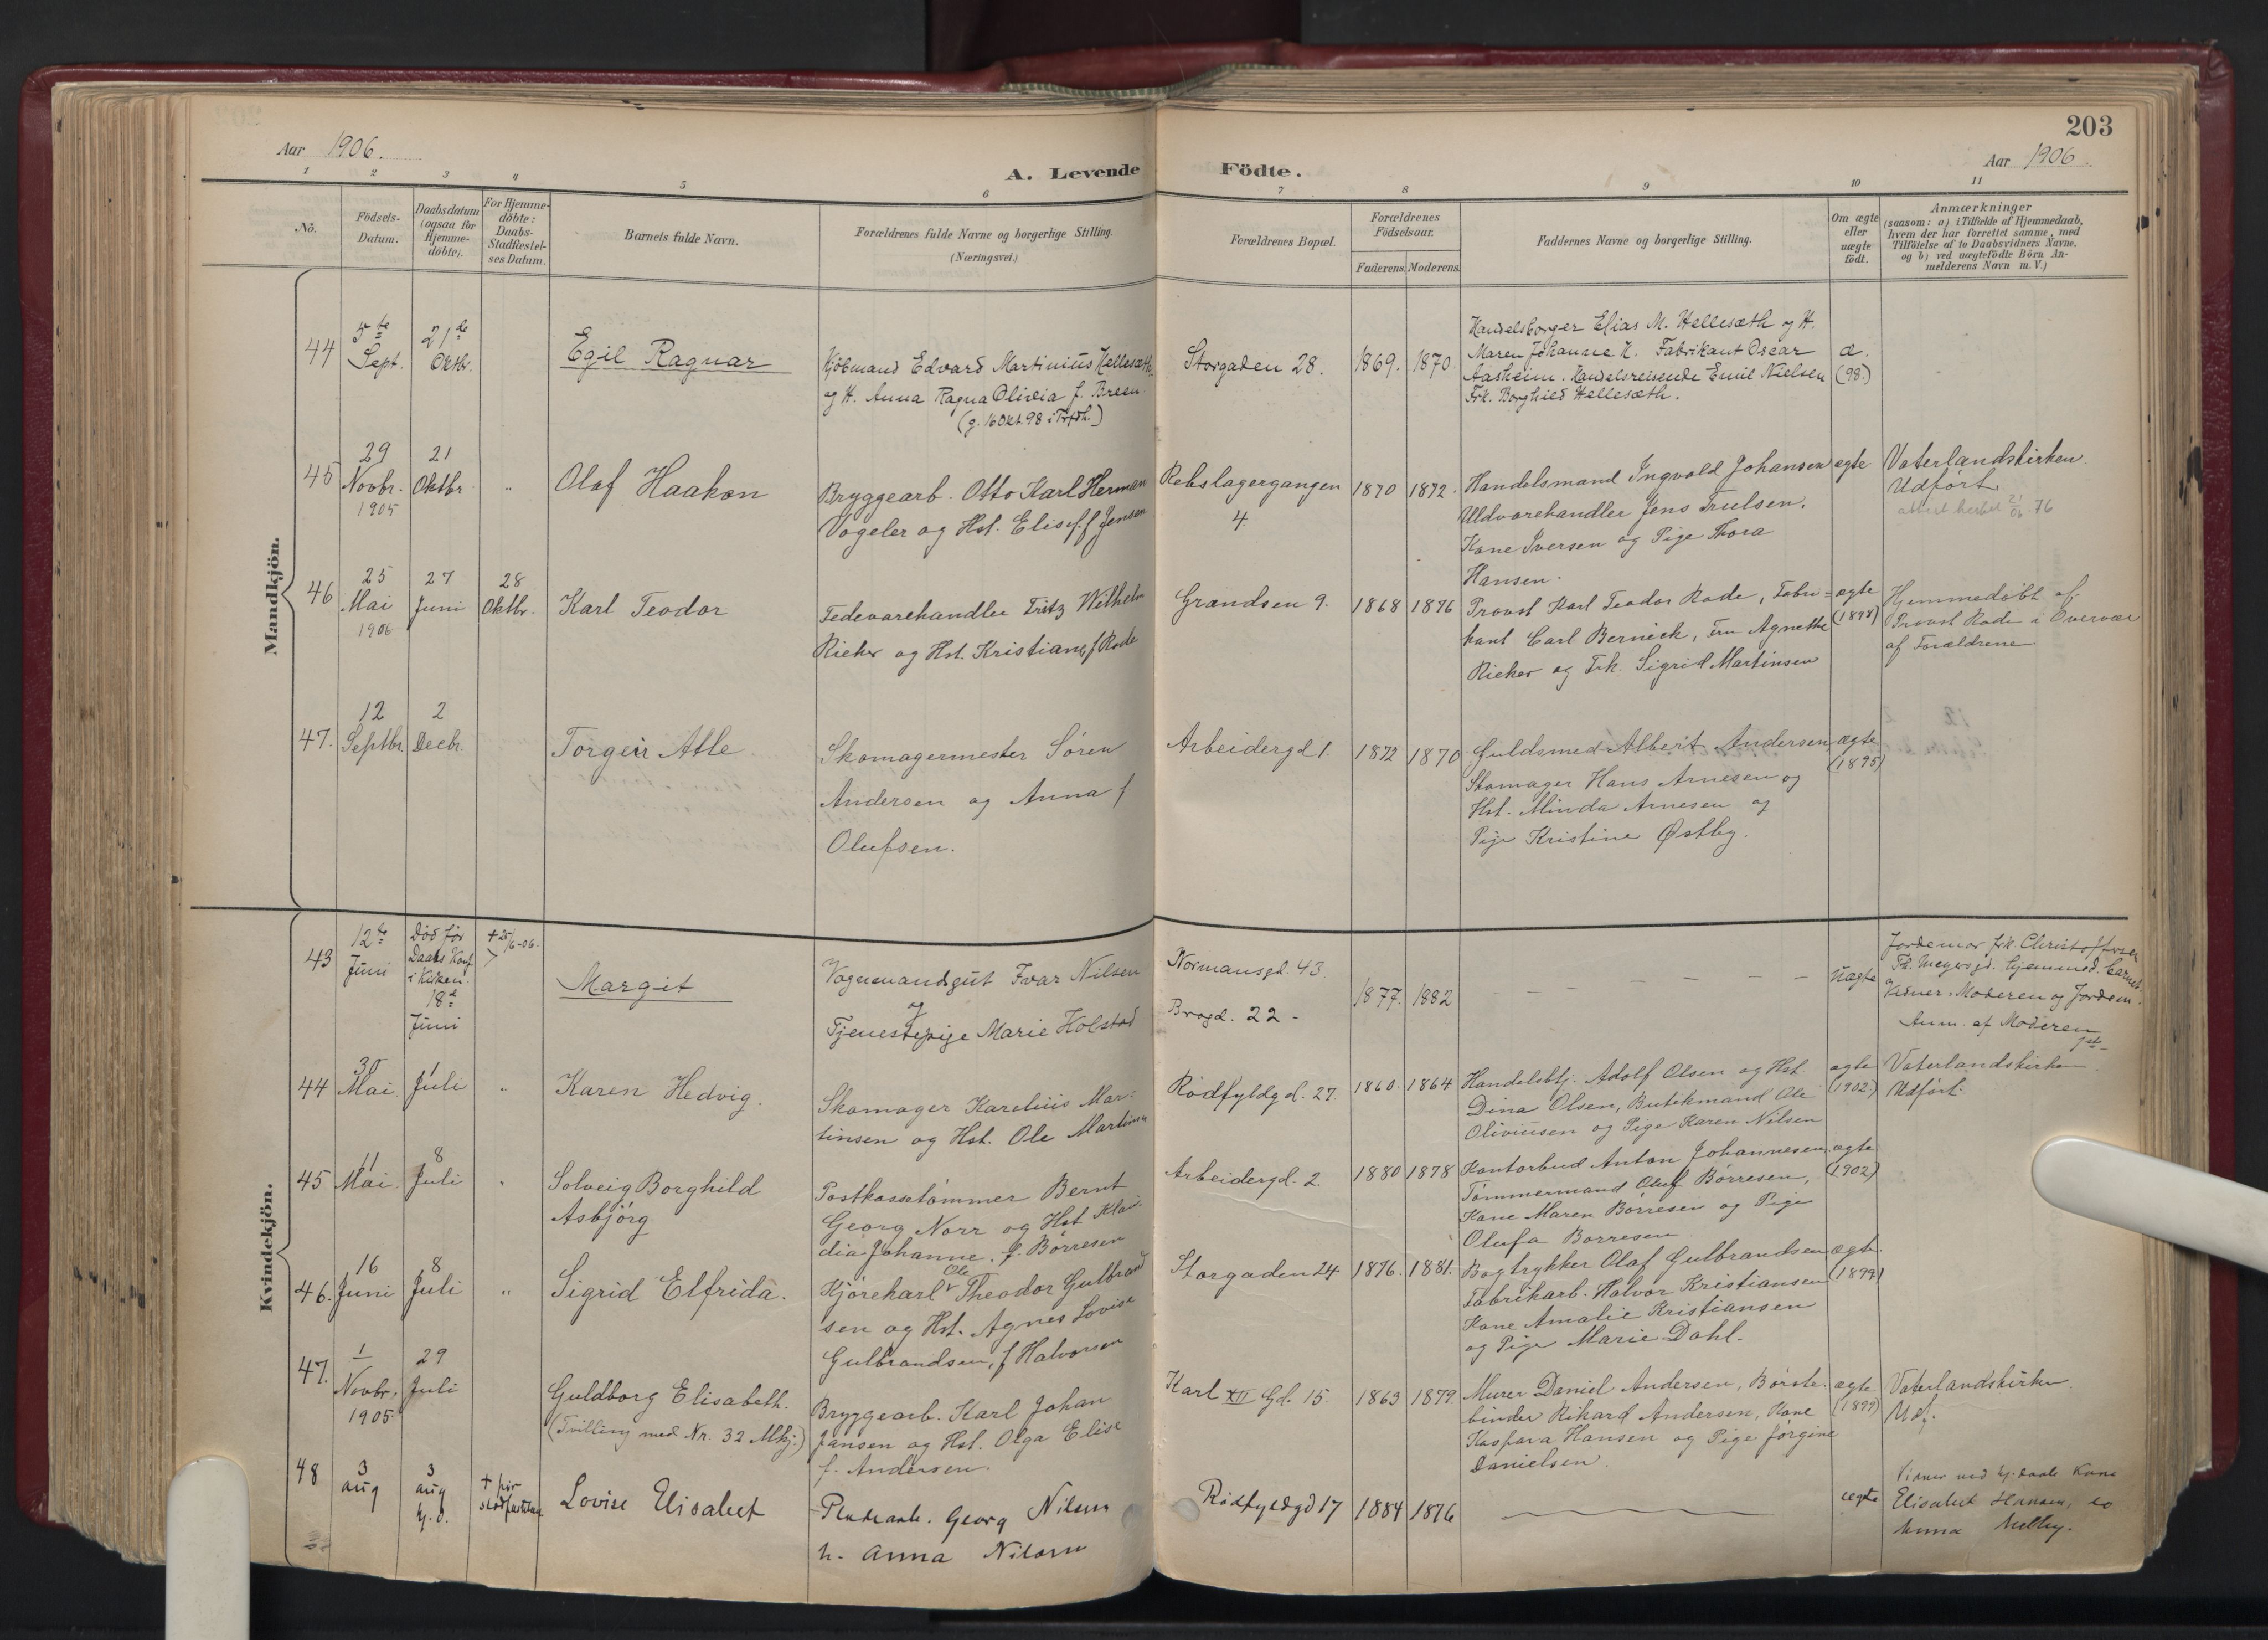 203
Aar 1906.
A. Levende Födte.
Aar 1906.
1 2 3 4 5 6 7 8 9 10 11
No.
Födsels-Datum.
Daabsdatum (ogsaa for Hjemme-döbte).
For Hjemme-döbte: Daabs-Stadfæstel-ses Datum.
Barnets fulde Navn.
Forældrenes fulde Navne og borgerlige Stilling.
(Næringsvei.)
Forældrenes Bopæl.
Forældrenes Födselsaar.
Faderens. Moderens.
Faddernes Navne og borgerlige Stilling.
Om ægte eller uægte födt.
Anmærkninger
(saasom: a) i Tilfælde af Hjemmedaab,
hvem der har forrettet samme, med
Tilföielse af to Daabsvidners Navne.
og b) ved uægtefödte Börn An-
melderens Navn m. V.)
Mandkjön.
44
5te Sept.
21de Oktbr.
Egil Ragnar
Kjøbmand Edvard Martinius Hellesæth
og H. Anna Ragna Olivia f. Breen
(g. 16 Okt. 98 i Trfdh.)
Storgaden 28.
1869. 1870
Handelsborger Elias M. Hellesæth og H.
Maren Johanne H. Fabrikant Oscar
Aasheim. Handelsreisende Emil Nielsen
Frk. Borghild Hellesæth.
æ.
(98.)
45
29 Novbr. 1905
21 Oktbr.
"
Olaf Haakon
Bryggearb. Otto Karl Herman
Vogeler og Hst. Elise f. Jensen
Rebslagergangen
4.
1870 1872.
Handelsmand Ingvald Johansen
Uldvarehandler Jens Trulsen.
Kone Iversen og Pige Thora
Hansen.
ægte
Vaterlandskirken.
Udført
21/06. 76
46
25 Mai 1906
27 Juni
28 Oktbr.
Karl Teodor
Fedevarehandler Fritz Wilhelm
Rieker og Hst. Kristiane f Rode
Grændsen 9.
1868 1876
Provst Karl Teodor Rode, Fabri=
kant Carl Bernick, Fru Agnethe
Rieker og Frk. Sigrid Martinsen
ægte
(1898)
Hjemmedøbt af
Provst Rode i Overvær
af Forældrene
47.
12 Septbr.
2 Decbr.
Torgeir Atle
Skomagermester Søren
Andersen og Anna f
Olufsen.
Arbeidergd 1.
1872 1870
Guldsmed Albert Andersen,
Skomager Hans Arnesen og
Hst. Minda Arnesen og
Pige Kristine Østby.
ægte
(1895)
Kvindekjön.
43
12te Juni
Død før
Daabs Konf.
i Kirken.
18d
Juni
+ 25/6-06.
Margit
Vognmandsgut Ivar Nilsen
og
Tjenestepige Marie Holstad
Normansgd. 43
Brogd. 22 -
1877. 1882
— — — — — —
Uægte
Jordemor frk. Christoffersen
Th. Meyersgd. hjemmed. barnet.
Vidner: Moderen og Jordem.
Anm. af Moderen
44
30 Mai
1 Juli
"
Karen Hedvig.
Skomager Karelius Mar=
tinsen og Hst. Ole Martinsen
Rødfyldgd. 27.
1860. 1864
Handelsbtj. Adolf Olsen og Hst
Dina Olsen, Butikmand Ole
Oliviusen og Pige Karen Nilsen
ægte
(1902.)
Vaterlandskirken.
Udført.
45
11 Mai.
8 Juli
"
Solveig Borghild
Asbjørg
Postkassetømmer Bernt
Georg Norr og Hst Klau-
dia Johanne. f. Børresen
Arbeidergd. 2.
1880 1878
Kontorbud Anton Johannesen,
Tømmermand Oluf Børresen,
Kone Maren Børresen og Pige
Olufa Børresen
ægte
(1902)
46.
16 Juni
8 Juli
"
Sigrid Elfrida.
Kjørekarl Ole Theodor Gulbrand
sen og Hst. Agnes Lovise
Gulbrandsen, f Halvorsen
Storgaden 24
1876. 1881.
Bogtrykker Olaf Gulbrandsen
Fabrikarb. Halvor Kristiansen
Kone Amalie Kristiansen
og Pige Marie Dahl.
ægte.
(1899)
47.
1 Novbr. 1905
29 Juli
Guldborg Elisabeth.
(Tvilling med Nr. 32 Mkj.)
Bryggearb. Karl Johan
Jansen og Hst. Olga Elise
f. Andersen.
Karl XII Gd. 15.
1863 1879.
Murer Daniel Andersen, Børste-
binder Rikard Andersen, Kone
Kaspara Hansen og Pige Jørgine
Danielsen.
ægte
(1899)
Vaterlandskirken.
Udf.
48
3 aug
3 aug
hj. d.
+ før
stadfæstelse
Lovise Elisabet
Georg Nilsen
h. Anna Nilsen
Rødfyldgd 17
1884 1876
ægte
Vidner ved hj. daab Kone
Elisabet Hansen, do
Anna Melby.